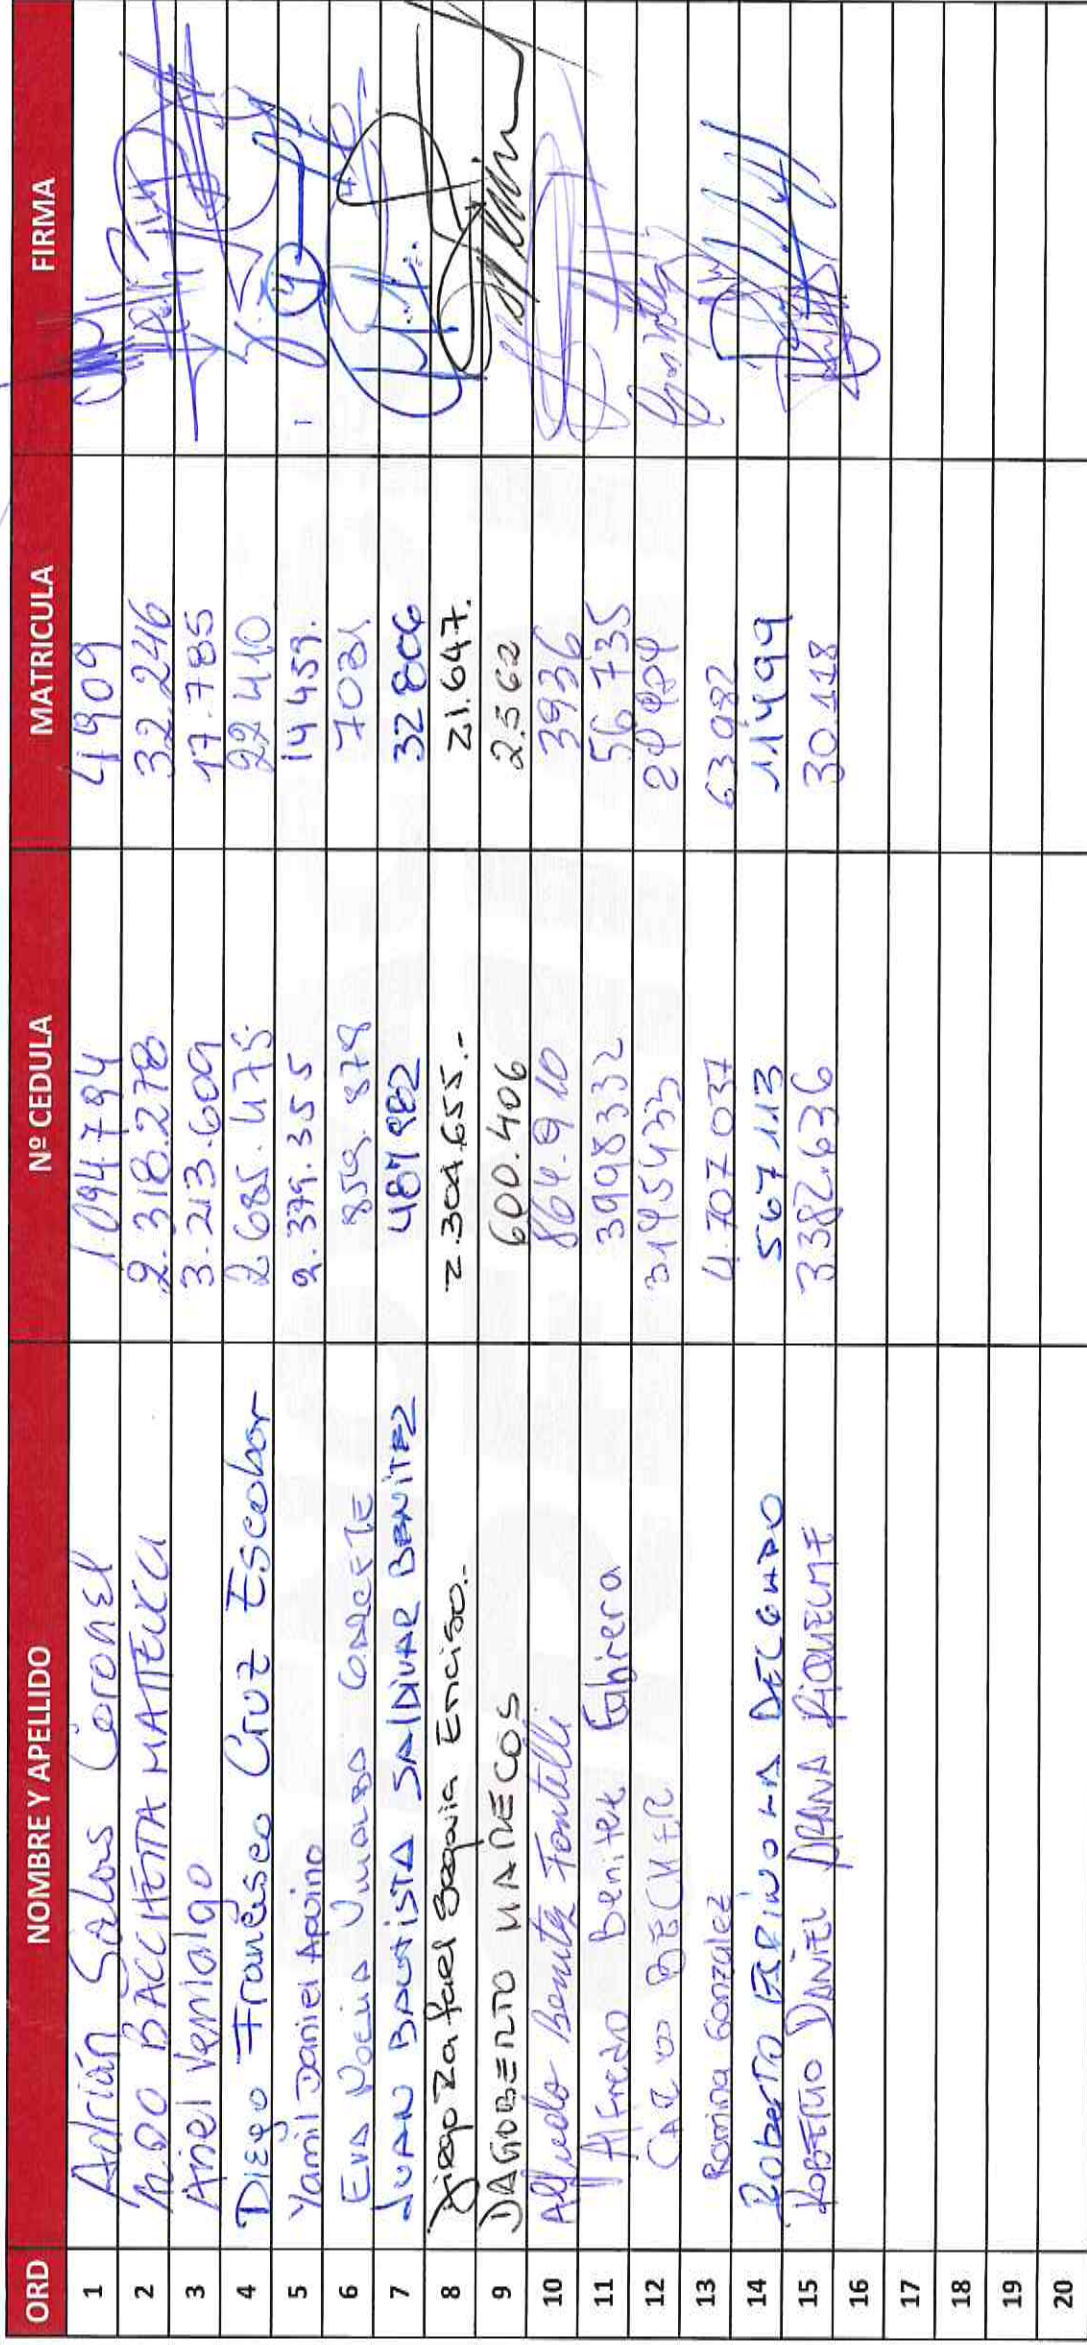 ORD NOMBRE Y APELLIDO Nº CEDULA MATRICULA FIRMA
1 Adrián Salas Coronel 1.094.794 4909
2 BACCHETTA MATTEUCCI 2.318.278 32.246
3 Ariel Vernalgo 3.213.609 17.785
4 Diego Francisco Cruz Escobar 2685.475 22410
5 Yamil Daniel Aquino 2.379.355 14459.
6 EVA 859.879
7 JUAN BAUTISTA SALDIVAR BENITEZ 487982 32806
8 Diego Rafael Segovia Enciso.- 2.304.655.- 21.647.
9 DAGOBERTO MARECOS 600.406 2.562
10 Alfredo Benitez Fontelli 864.910 3936
11 Alfredo Benitez Cabrera 3998332 56.735
12 BECKER 3195433
13 Romina Gonzalez 4.707.037 63982
14 Roberto DELGADO 567113 11499
15 ROBERTO DANIEL RIQUELME 3382.636 30.118
16
17
18
19
20